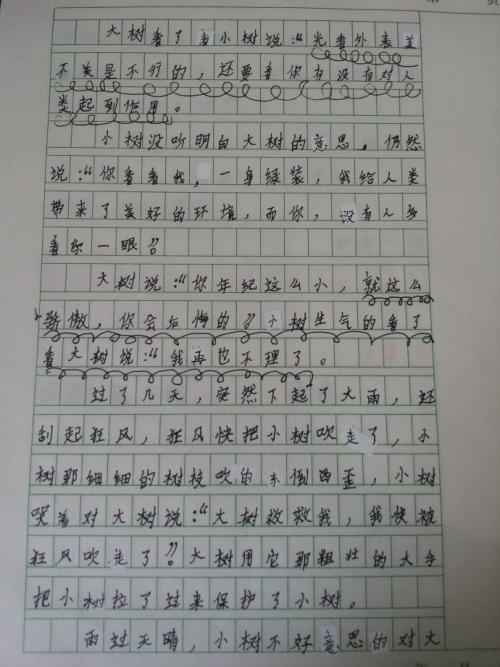 大树看了看小树说：“光看外表美
不美是不行的，还要看你有没有对人
类起到作用。
小树没听明白大树的意思，仍然
说：“你看看我，一身绿装，我给人类
带来了美好的环境，而你，没有人多
看你一眼？”
大树说：“你年纪这么小，就这么
骄傲，你会后悔的？”小树生气的看了
看大树说：“我再也不理了。
过了几天，突然下起了大雨，还
刮起狂风，狂风快把小树吹走了，小
树那细细的树枝吹的东倒西歪，小树
哭着对大树说：“大树救救我，我快被
狂风吹走了？”大树用它那粗壮的大手
把小树拉了过来保护了小树。
雨过天晴，小树不好意思的对大